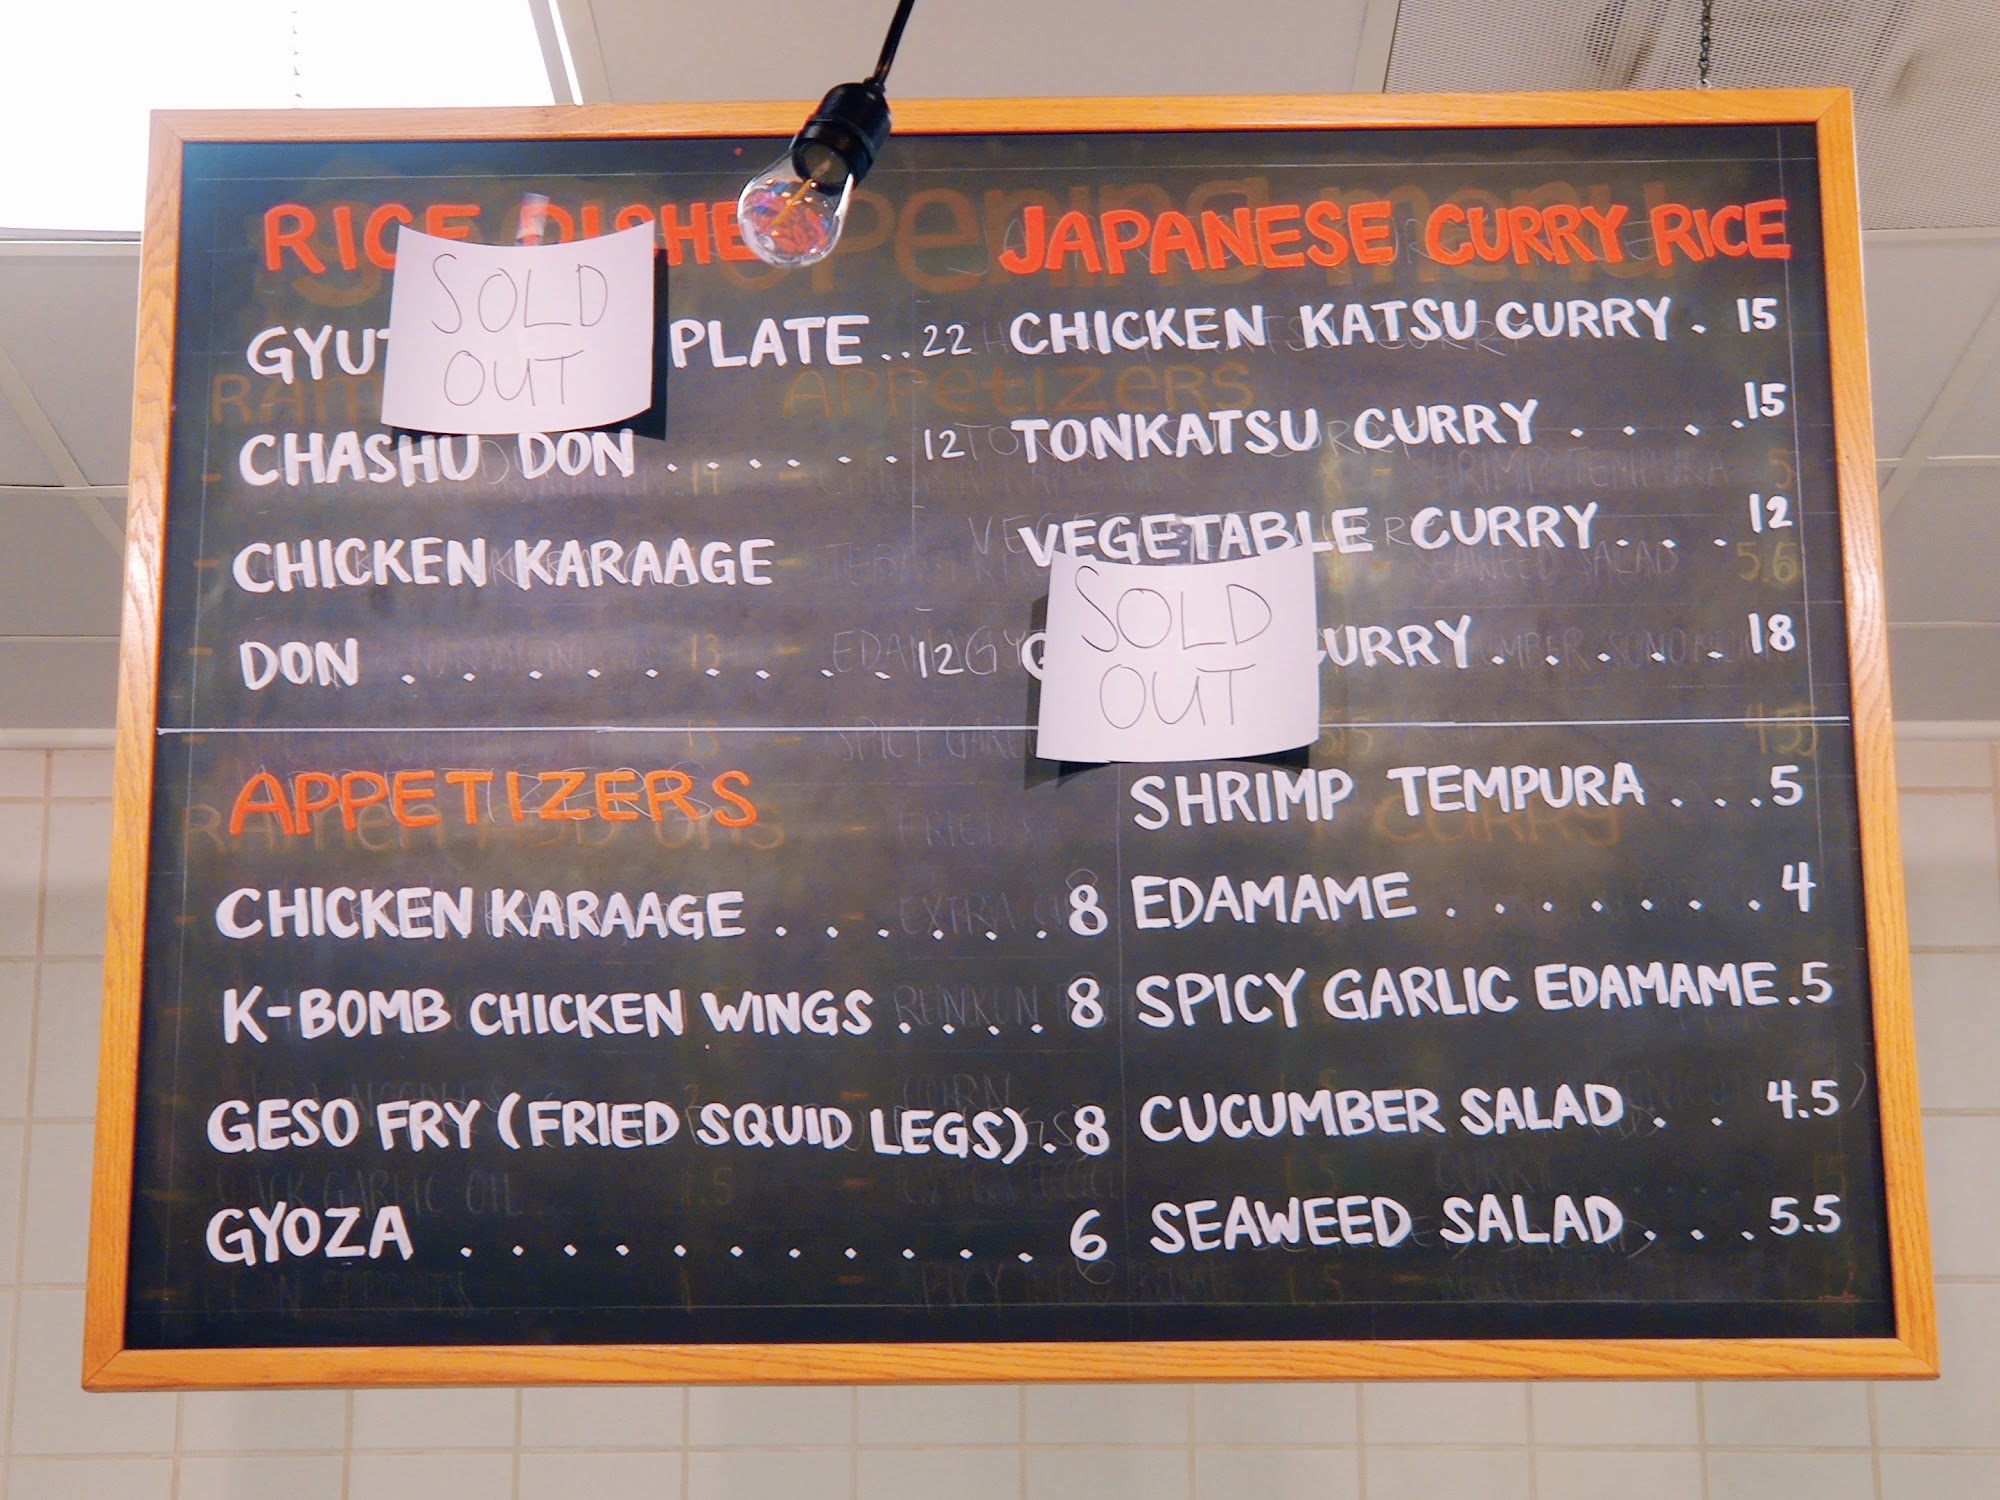 RICE DISHE
JAPANESE CURRY RICE
SOLD
OUT
PLATE .. 22
CHASHU DON . . . . . . 12
CHICKEN KARAAGE
DON . . . . . . . . . . 12
CHICKEN KATSU CURRY . 15
TONKATSU CURRY . . . . 15
VEGETABLE CURRY . . . 12
SOLD
OUT
CURRY . . . . . . 18
APPETIZERS
CHICKEN KARAAGE . . . . . . 8
K-BOMB CHICKEN WINGS . . . . 8
GESO FRY (FRIED SQUID LEGS) . 8
GYOZA . . . . . . . . . . . . 6
SHRIMP TEMPURA . . . 5
EDAMAME . . . . . . . 4
SPICY GARLIC EDAMAME . 5
CUCUMBER SALAD . . 4.5
SEAWEED SALAD . . . 5.5